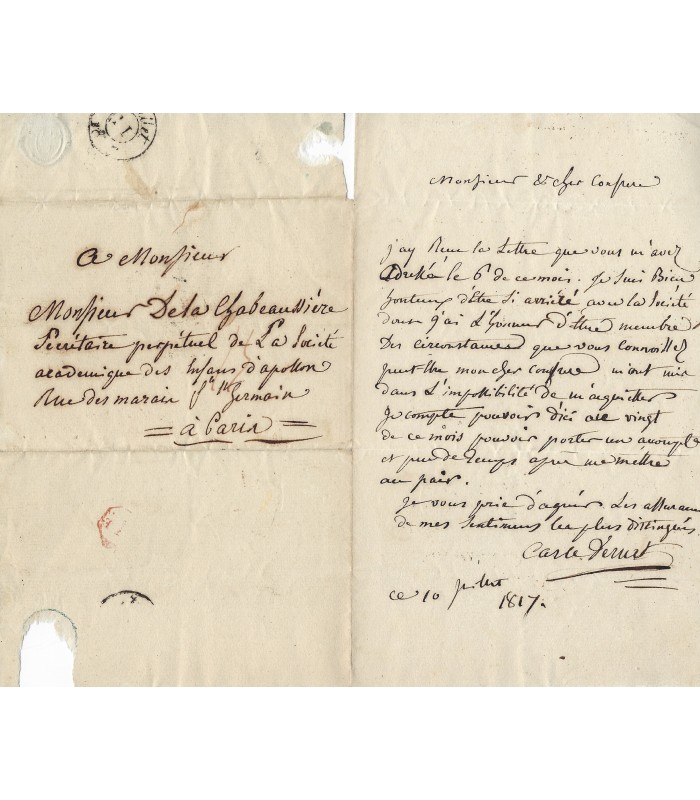 A Monsieur
Monsieur De la Chabeaussière
Secrétaire perpétuel de La Société
academique des Enfans d'apollon
Rue des marais f. St. Germain
à Paris
Monsieur & cher Confrere
j'ay Recue la Lettre que vous m'avez
adressé le 6 de ce mois. Je suis Bien
honteux d'être si arriéré avec la Société
dont j'ai L'honneur d'être membre
Des circonstances que vous connoissez
peut être mon cher confrere m'ont mis
dans L'impossibilité de m'acquitter
Je compte pouvoir d'ici au vingt
de ce mois pouvoir porter un acompte
et peu de temps après me mettre
au pair.
Je vous prie d'agréer Les assurances
de mes sentimens les plus distingués
Carle Vernet
ce 10 juillet
1817.